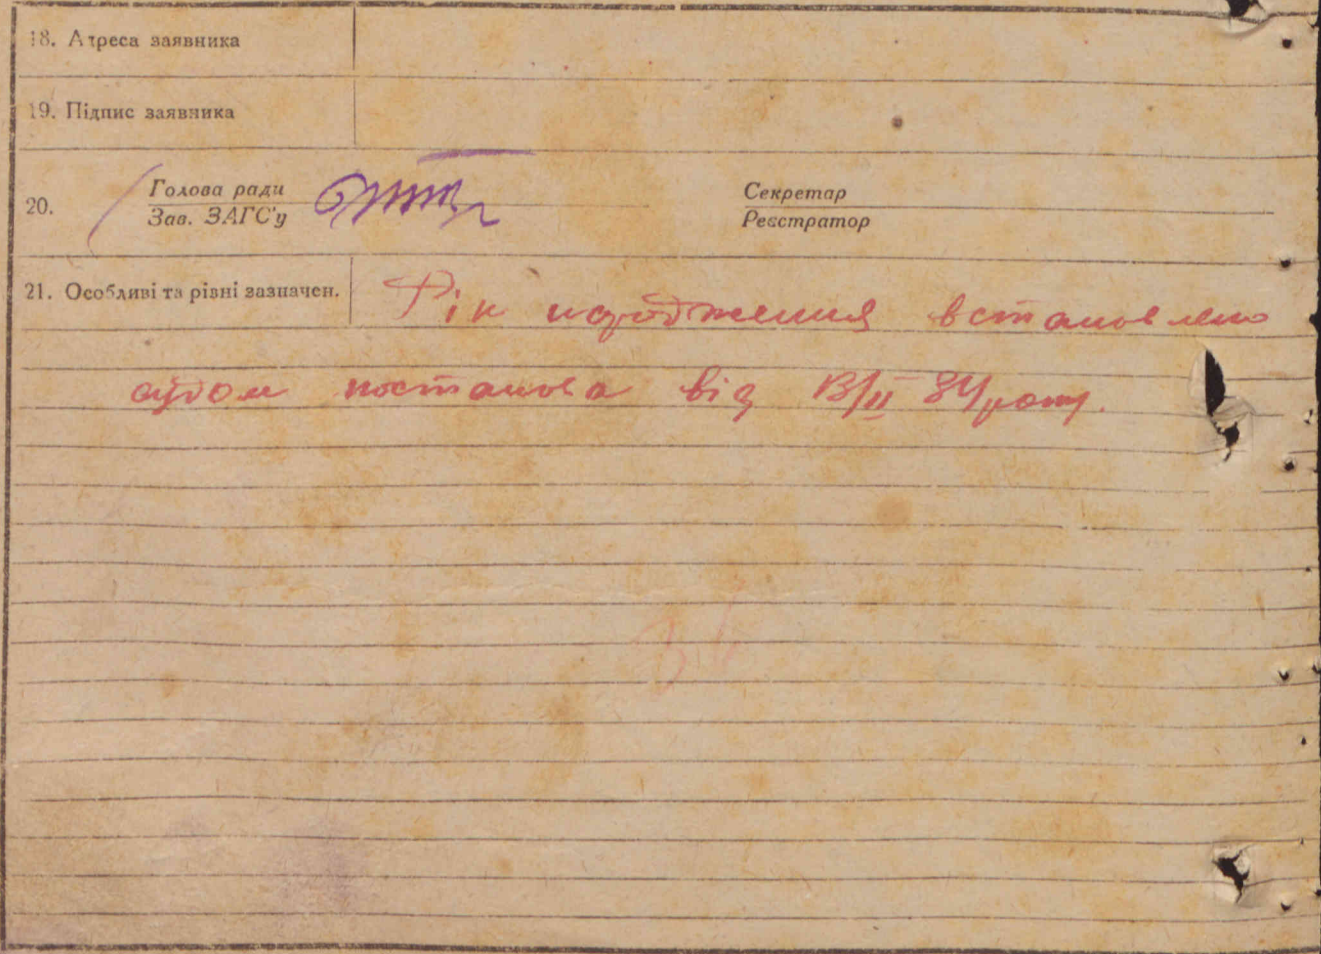 18. Адреса заявника
19. Підпис заявника
20.
Голова ради
Зав. ЗАГС'у
Секретар
Реєстратор
21. Особливі та рівні зазначен.
Рік народження встановлено
судом постанова від 13/II 34 року.